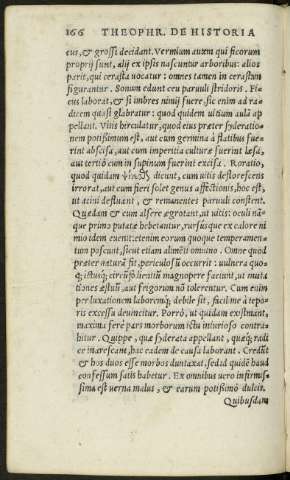 166 THEOPHR. DE HISTORIA
eus, & grossi decidant. Vermium autem qui ficorum
proprij sunt, alij ex ipsis nascuntur arboribus: alios
parit, qui cerasta uocatur: omnes tamen in cerastum
figurantur. Sonum edunt ceu paruuli stridoris. Fi=
cus laborat, & si imbres nimij fuere, sic enim ad ra=
dicem quasi glabratur: quod quidem uitium aulā ap
pellant. Vitis hirculatur, quod eius præter syderatio=
nem potissimum est, aut cum germina à flatibus fue=
rint abscisa, aut cum imperitia culturæ fuerint læsa,
aut tertiò cum in supinum fuerint excisa. Roratio,
quod quidam dicunt, cum uitis deflorescens
irrorat, aut cum fieri solet genus affectionis, hoc est,
ut acini destuant, & remanentes paruuli constent.
Quædam & cum alsere ægrotant, ut uitis: oculi nā=
que primo putatæ hebetantur, rursusque ex calore ni
mio idem euenit: etenim eorum quoque temperamen=
tum poscunt, sicut etiam alimēti omnino. Omne quod
præter naturā fit, periculosū occurrit: uulnera quo=
q; ictusq; circūsolientiū magnopere faciunt, ut muta
tiones æstuū, aut frigorum nō tolerentur. Cum enim
per luxationem laboremq; debile sit, facilime à tepo=
ris excessu deuincitur. Porrò, ut quidam existimant,
maxima ferè pars morborum ictu iniurioso contra=
hitur. Quippe, quæ syderata appellant, quæq; radi
ce inarescant, hac eadem de causa laborant. Credūt
& hos duos esse morbos duntaxat, sed id quidē haud
confessum satis habetur. Ex omnibus uero infirmis=
sima est uerna malus, & earum potissimò dulcis.
Quibusdam